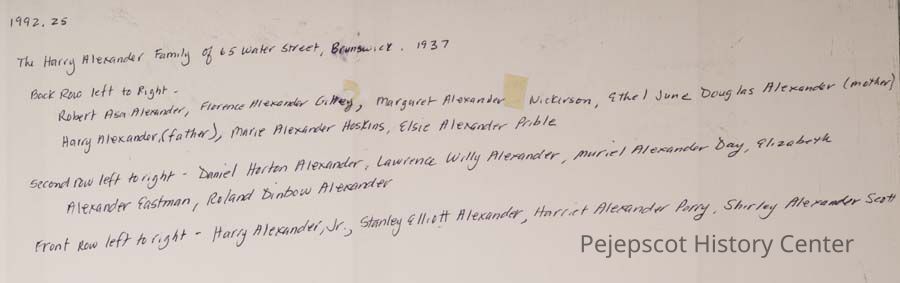 1992.25
The Harry Alexander Family of 65 Water Street, Brunswick. 1937
Back Row left to Right -
Robert Asa Alexander, Florence Alexander Gilley, Margaret Alexander Nickirson, Ethel June Douglas Alexander (mother)
Harry Alexander, (father), Marie Alexander Hoskins, Elsie Alexander Prible
Second row left to right - Daniel Horton Alexander, Lawrence Willy Alexander, Muriel Alexander Day, Elizabeth
Alexander Eastman, Roland Dinbow Alexander
Front Row left to right - Harry Alexander, Jr., Stanley Elliott Alexander, Harriet Alexander Perry, Shirley Alexander Scott
Pejepscot History Center